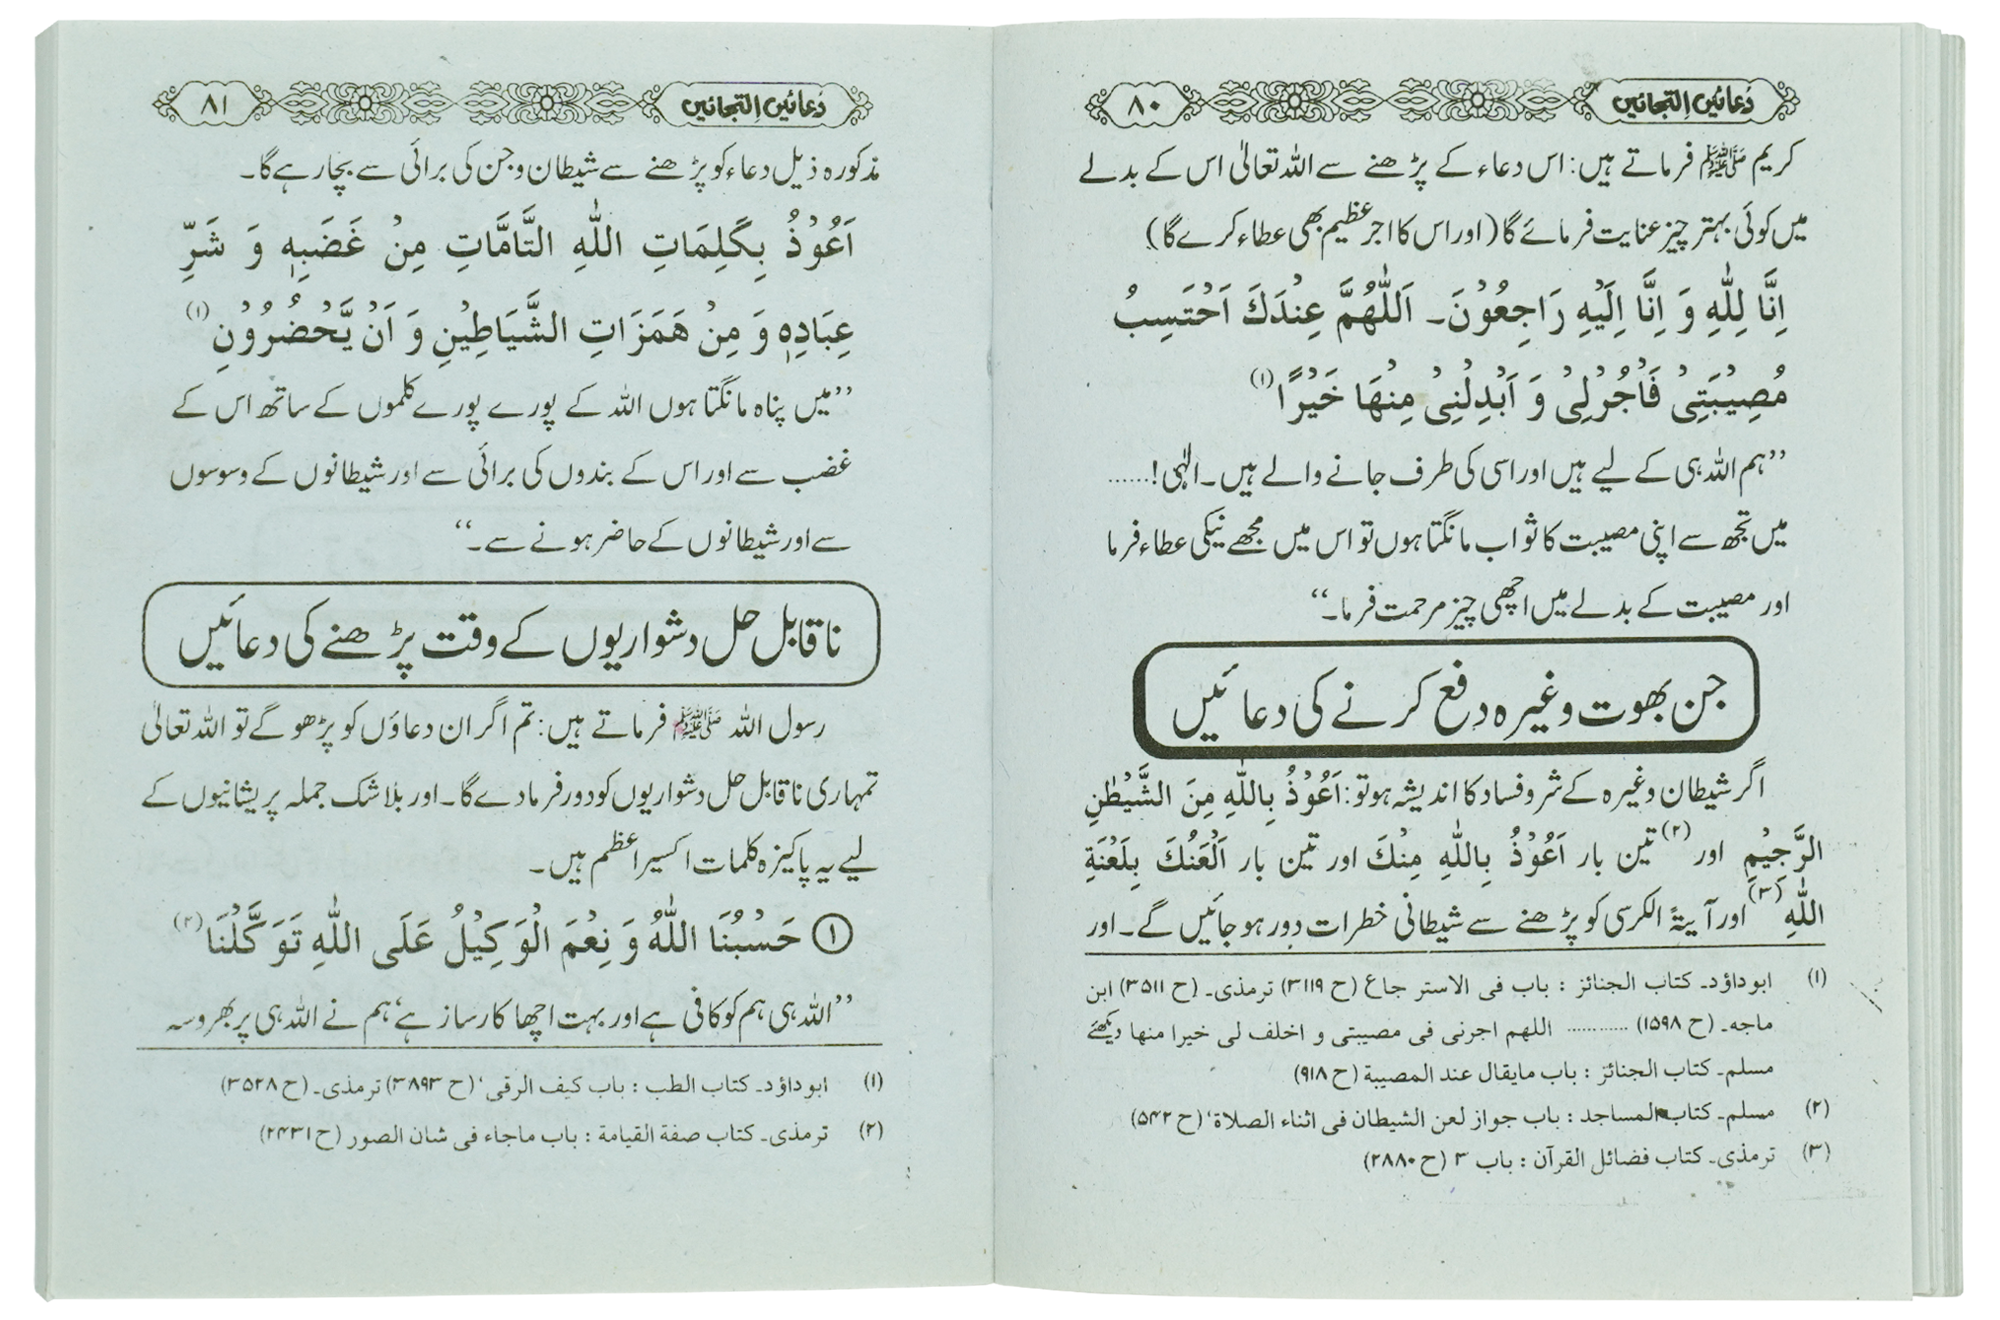 دُعائیں التجائیں ۸۰
کریم ﷺ فرماتے ہیں: اس دعاء کے پڑھنے سے اللہ تعالیٰ اس کے بدلے
میں کوئی بہتر چیز عنایت فرمائے گا (اور اس کا اجر عظیم بھی عطاء کرے گا)
اِنَّا لِلّٰهِ وَ اِنَّا اِلَيْهِ رَاجِعُوْنَ۔ اَللّٰهُمَّ عِنْدَكَ اَحْتَسِبُ
مُصِيْبَتِىْ فَاْجُرْلِىْ وَ اَبْدِلْنِىْ مِنْهَا خَيْرًا (۱)
’’ہم اللہ ہی کے لیے ہیں اور اسی کی طرف جانے والے ہیں۔ الٰہی!......
میں تجھ سے اپنی مصیبت کا ثواب مانگتا ہوں تو اس میں مجھے نیکی عطاء فرما
اور مصیبت کے بدلے میں اچھی چیز مرحمت فرما۔‘‘
جن بھوت وغیرہ دفع کرنے کی دعائیں
اگر شیطان وغیرہ کے شر و فساد کا اندیشہ ہو تو: اَعُوْذُ بِاللّٰهِ مِنَ الشَّيْطٰنِ
الرَّجِيْمِ اور (۲) تین بار اَعُوْذُ بِاللّٰهِ مِنْكَ اور تین بار اَلْعَنُكَ بِلَعْنَةِ
اللّٰهِ (۳) اور آیۃ الکرسی کو پڑھنے سے شیطانی خطرات دور ہو جائیں گے۔ اور
(۱) ابوداؤد۔ کتاب الجنائز : باب فی الاستر جاع (ح ۳۱۱۹) ترمذی۔ (ح ۳۵۱۱) ابن
ماجه۔ (ح ۱۵۹۸) ............ اللهم اجرنی فی مصیبتی و اخلف لی خیرا منها دیکھئے
مسلم۔ کتاب الجنائز : باب مایقال عند المصیبة (ح ۹۱۸)
(۲) مسلم۔ کتاب المساجد : باب جواز لعن الشیطان فی اثناء الصلاة‘ (ح ۵۴۲)
(۳) ترمذی۔ کتاب فضائل القرآن : باب ۳ (ح ۲۸۸۰)
دُعائیں التجائیں ۸۱
مذکورہ ذیل دعاء کو پڑھنے سے شیطان و جن کی برائی سے بچا رہے گا۔
اَعُوْذُ بِكَلِمَاتِ اللّٰهِ التَّامَّاتِ مِنْ غَضَبِهٖ وَ شَرِّ
عِبَادِهٖ وَ مِنْ هَمَزَاتِ الشَّيَاطِيْنِ وَ اَنْ يَّحْضُرُوْنِ (۱)
’’میں پناہ مانگتا ہوں اللہ کے پورے پورے کلموں کے ساتھ اس کے
غضب سے اور اس کے بندوں کی برائی سے اور شیطانوں کے وسوسوں
سے اور شیطانوں کے حاضر ہونے سے۔‘‘
ناقابل حل دشواریوں کے وقت پڑھنے کی دعائیں
رسول اللہ ﷺ فرماتے ہیں: تم اگر ان دعاؤں کو پڑھو گے تو اللہ تعالیٰ
تمہاری ناقابل حل دشواریوں کو دور فرما دے گا۔ اور بلاشک جملہ پریشانیوں کے
لیے یہ پاکیزہ کلمات اکسیر اعظم ہیں۔
① حَسْبُنَا اللّٰهُ وَ نِعْمَ الْوَكِيْلُ عَلَى اللّٰهِ تَوَكَّلْنَا (۲)
’’اللہ ہی ہم کو کافی ہے اور بہت اچھا کارساز ہے‘ ہم نے اللہ ہی پر بھروسہ
(۱) ابوداؤد۔ کتاب الطب : باب کیف الرقی‘ (ح ۳۸۹۳) ترمذی۔ (ح ۳۵۲۸)
(۲) ترمذی۔ کتاب صفة القیامة : باب ماجاء فی شان الصور (ح ۲۴۳۱)